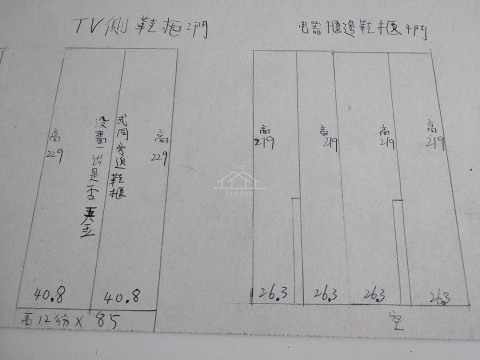 TV側鞋柜2門
电器櫃邊鞋櫃4門
高
229
沒畫一出是否
式同旁邊鞋櫃
高
229
40.8
40.8
高12分×85
高
219
高
219
高
219
高
219
26.3
26.3
26.3
26.3
空